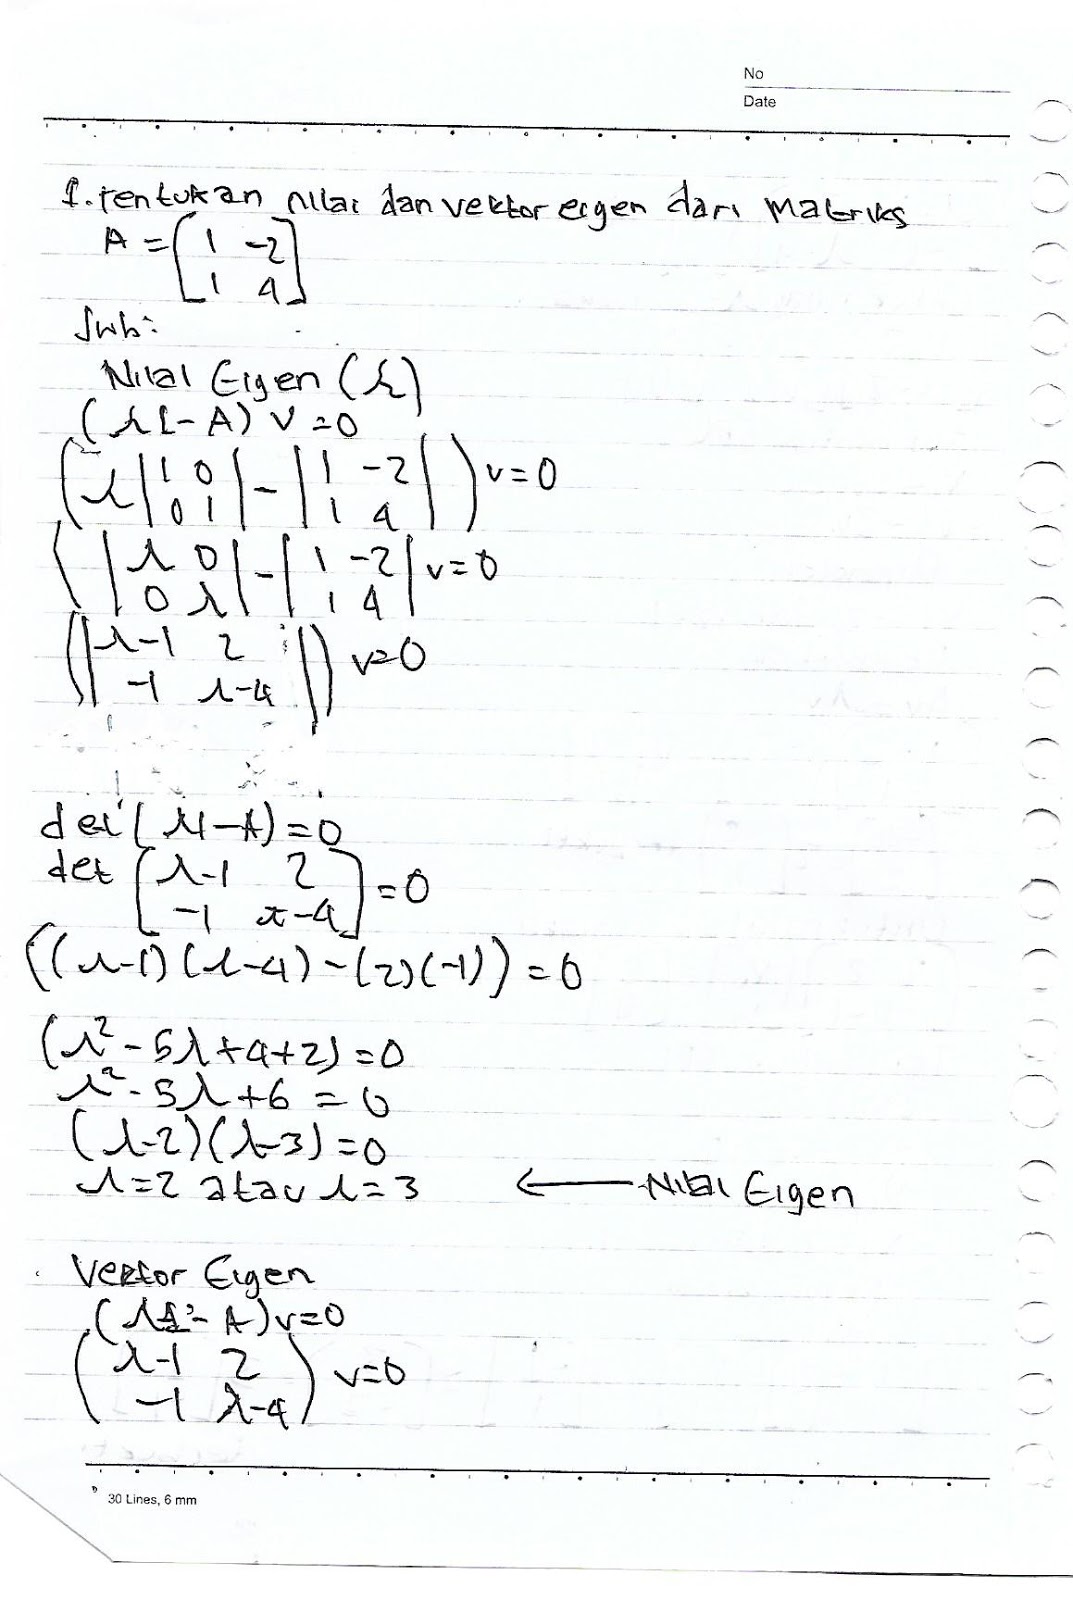 No
Date
1. Tentukan nilai dan vektor eigen dari Matriks
A = [1 -2
1 4]
Jwb:
Nilai Eigen (λ)
(λI - A) V = 0
(λ |1 0
0 1| - |1 -2
1 4|) v = 0
(|λ 0
0 λ| - |1 -2
1 4| v = 0
(|λ-1 2
-1 λ-4|) v = 0
det (λI - A) = 0
det [λ-1 2
-1 λ-4] = 0
((λ-1)(λ-4) - (2)(-1)) = 0
(λ² - 5λ + 4 + 2) = 0
λ² - 5λ + 6 = 0
(λ-2)(λ-3) = 0
λ = 2 atau λ = 3 ← Nilai Eigen
Vektor Eigen
(λI - A) v = 0
(λ-1 2
-1 λ-4) v = 0
30 Lines, 6 mm